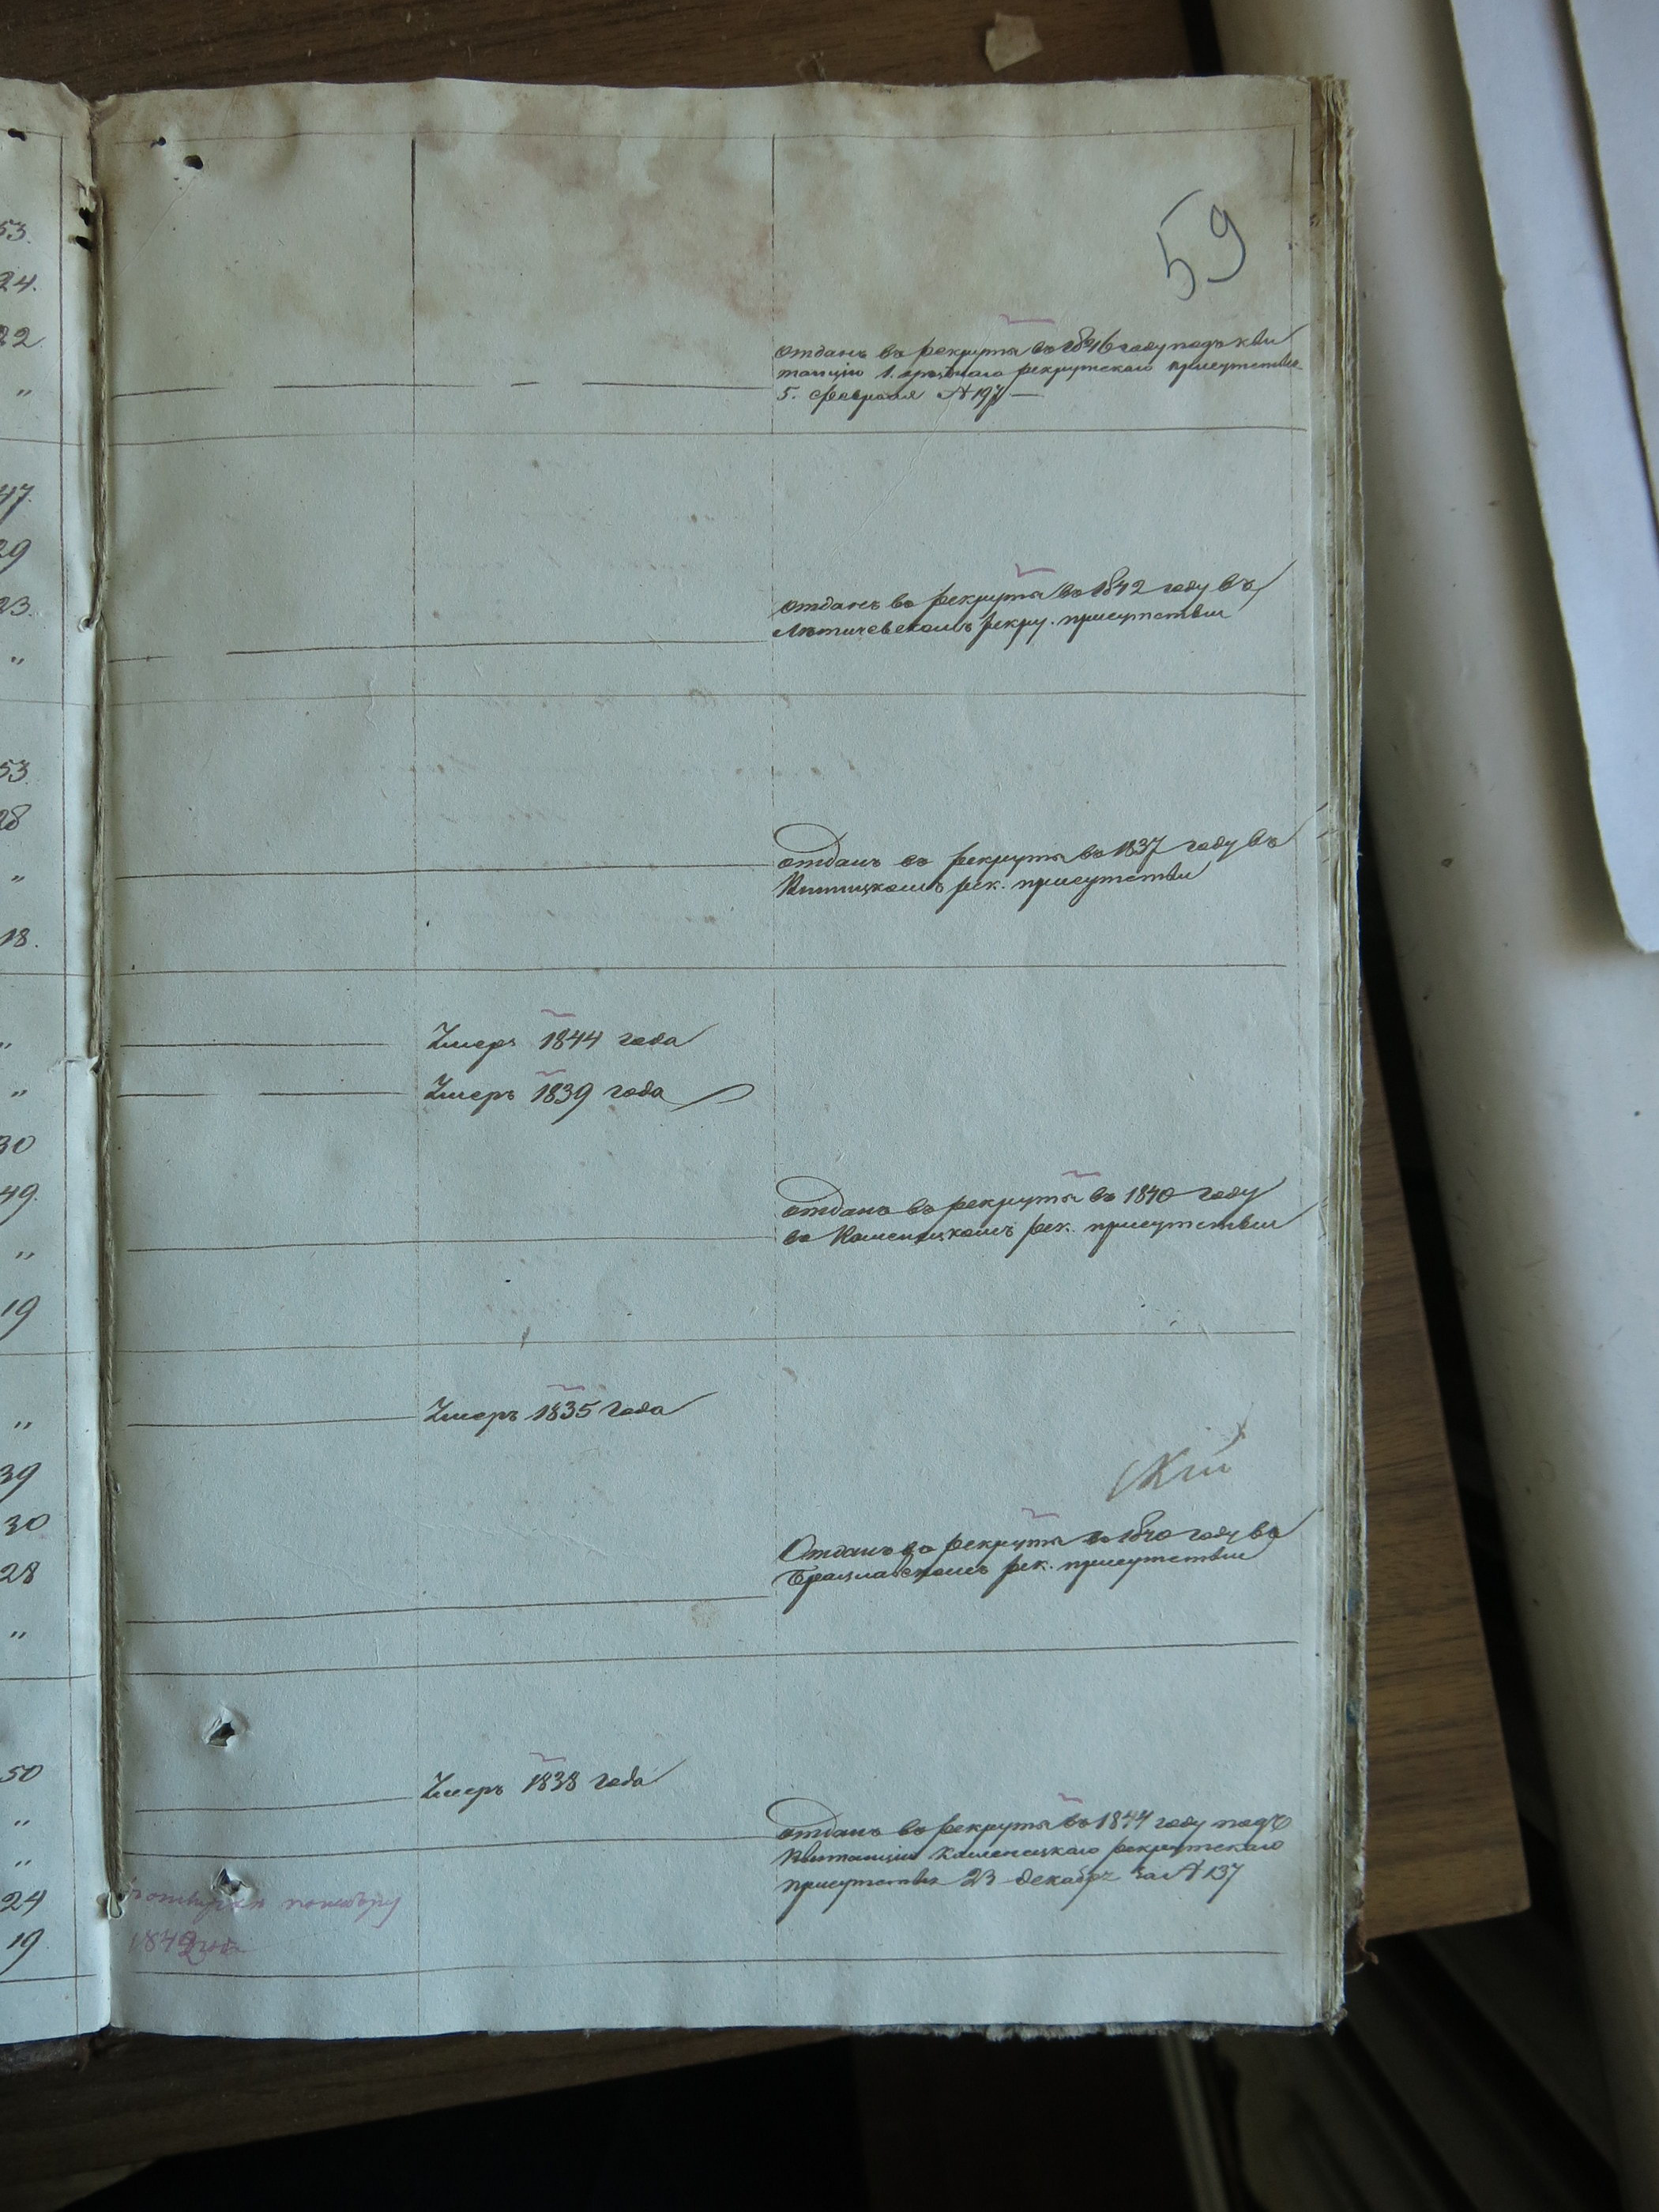 59
53.
24.
22
"
отданъ въ рекруты въ 1846 году подъ кви
танцію 1. рекрутскаго присутствія
5. февраля № 197
47.
29
23.
"
отданъ въ рекруты въ 1842 году въ
Лѣтичевскомъ рекру. присутствіи
53.
28
"
18.
отданъ въ рекруты въ 1837 году въ
Винницкомъ рек. присутствіи
" Умеръ 1844 года
" Умеръ 1839 года
30
49.
"
19
отданъ въ рекруты въ 1840 году
въ Каменецкомъ рек. присутствіи
" Умеръ 1835 года
39
30
28
"
скій
Отданъ въ рекруты въ 1840 году въ
Брацлавскомъ рек. присутствіи
50 Умеръ 1838 года
"
"
отданъ въ рекруты въ 1844 году подъ
Квитанцію Каменецкаго рекрутскаго
присутствія 23 декабря за № 137
24
19